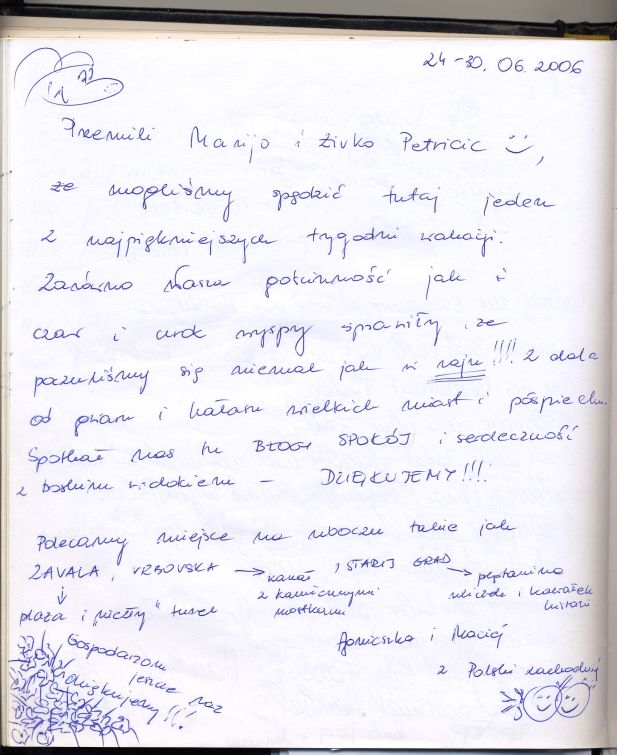 24-30.06.2006
Przemili Marijo i Živko Petricic
że mogliśmy spędzić tutaj jeden
z najpiękniejszych tygodni wakacji.
Zarówno Wasza gościnność jak i
czar i urok wyspy sprawiły, że
poczuliśmy się niemal jak w raju!!!! Z dala
od gwaru i hałasu wielkich miast i pośpiechu.
Spotkał nas tu BŁOGI SPOKÓJ i serdeczność
z boskim widokiem - DZIĘKUJEMY!!!
Polecamy miejsca na uboczu takie jak
ZAVALA, VRBOVSKA → kanał z kamiennymi mostkami, STARIJ GRAD → plątanina uliczek i kawałek historii
plaża i "piekły" tunel
Agnieszka i Maciej
z Polski zachodniej
Gospodarzom
jeszcze raz
dziękujemy!!!